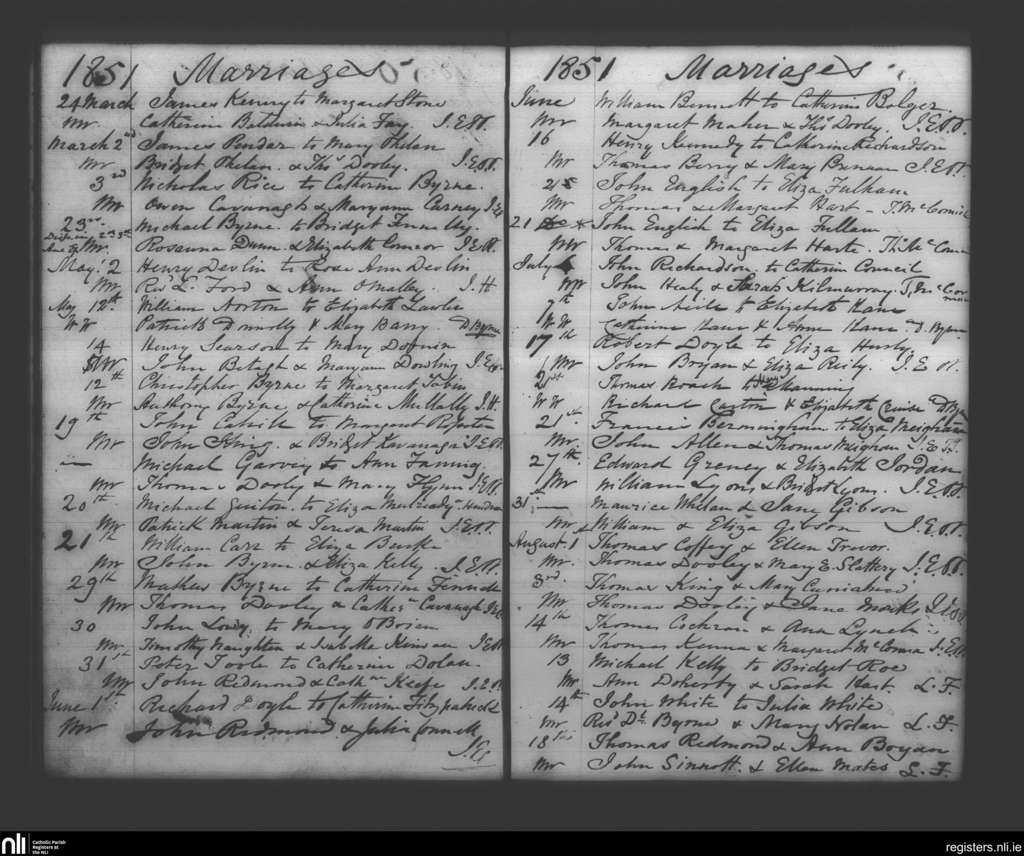 1851 Marriages
24 March James Kenny to Margaret Stone
Wr. Catherine Baldwin & Julia Fay. J.E.P.P.
March 2nd James Pindar to Mary Phelan
Wr. Bridget Phelan & Thos Dooley. J.E.P.P.
3rd Nicholas Rice to Catherine Byrne.
Wr Owen Cavanagh & Maryann Carney
23rd Michael Byrne to Bridget Fennelly.
Wr. Rosanna Dunn & Elizabeth Connor J.E.P.P.
May 2 Henry Devlin to Rose Ann Devlin
Wr. Revd L. Ford & Ann O'Malley. J.H
May 12th William Norton to Elizabeth Lawler
WW Patrick Donnolly & Mary Barry. D. Byrne
14 Henry Searson to Mary
Wr John Betagh & Maryann Dowling
12th Christopher Byrne to Margaret Tobin
Wr Anthony Byrne & Catherine Mullally J.H.
19th John Cahill to Margaret
Wr John King & Bridget Kavanagh J.E.P.P.
— Michael Garvey to Ann Fanning.
Wr Thomas Dooly & Mary Flynn J.E.P.P.
20th Michael to Eliza
Wr Patrick Martin & Teresa Martin J.E.P.P.
21st William Carr to Eliza Burke
Wr John Byrne & Eliza Kelly. J.E.P.P.
29th Mathew Byrne to Catherine
Wr Thomas Dooley & Cathe Cavanagh
30 John to Mary O'Brien
Wr. Timothy Naughten & Isabella Kinsean J.E.P.P.
31st Peter Toole to Catherine Dolan
Wr John Redmond & Cathne Keefe J.E.P.P.
June 1st Richard Doyle to Catherine Fitzpatrick
Wr John Redmond & Julia Connell
1851 Marriages
June William Bennett to Catherine Bolger.
Wr Margaret Maher & Thos Dooley. J.E.P.P.
16 Henry Kennedy to Catherine Richardson
Wr Thomas Berry & Mary J.E.P.P.
25 John English to Eliza Fulham
Wr Thomas & Margaret Hart - T. McCormick
21 John English to Eliza Fullam
Wr Thomas & Margaret Harte.
July John Richardson to Catherine Council
Wr John Healy & Sarah Kilmurray. T. McCormack
9th John to Elizabeth Kane
WW Catherine Kane & Anne Kane D. Byrne
17th Robert Doyle to Eliza Husty
Wr John Bryan & Eliza Reily. J.E.P.P.
21st Thomas Roach to
WW Richard & Elizabeth Cruise D. Byrne
21st Francis Bermingham to Eliza Meighan
Wr. John Allen & Thomas Meighan J.E.P.P.
27th Edward Greney & Elizabeth Jordan
Wr William Lyons & Bridget Lyons. J.E.P.P.
31st Maurice Whelan & Jane Gibson
Wr William & Eliza Gibson J.E.P.P.
August 1 Thomas Coffey & Ellen Trevor.
Wr. Thomas Dooley & Mary E. Slattery J.E.P.P.
3rd. Thomas King & Mary
Wr Thomas Dooley & Jane
14th Thomas Cochran & Ann Lynch
Wr Thomas Kenna & Margaret McKenna J.E.P.P.
13 Michael Kelly to Bridget Roe
Wr Ann Doherty & Sarah Hart. L.F.
14th John White to Julia White
Wr. Revd Dr. Byrne & Mary Nolan L.F.
18th Thomas Redmond & Ann Boyan
Wr John Sinnott & Ellen Mates L.F.
nli
Catholic Parish
Registers at
the NLI
registers.nli.ie